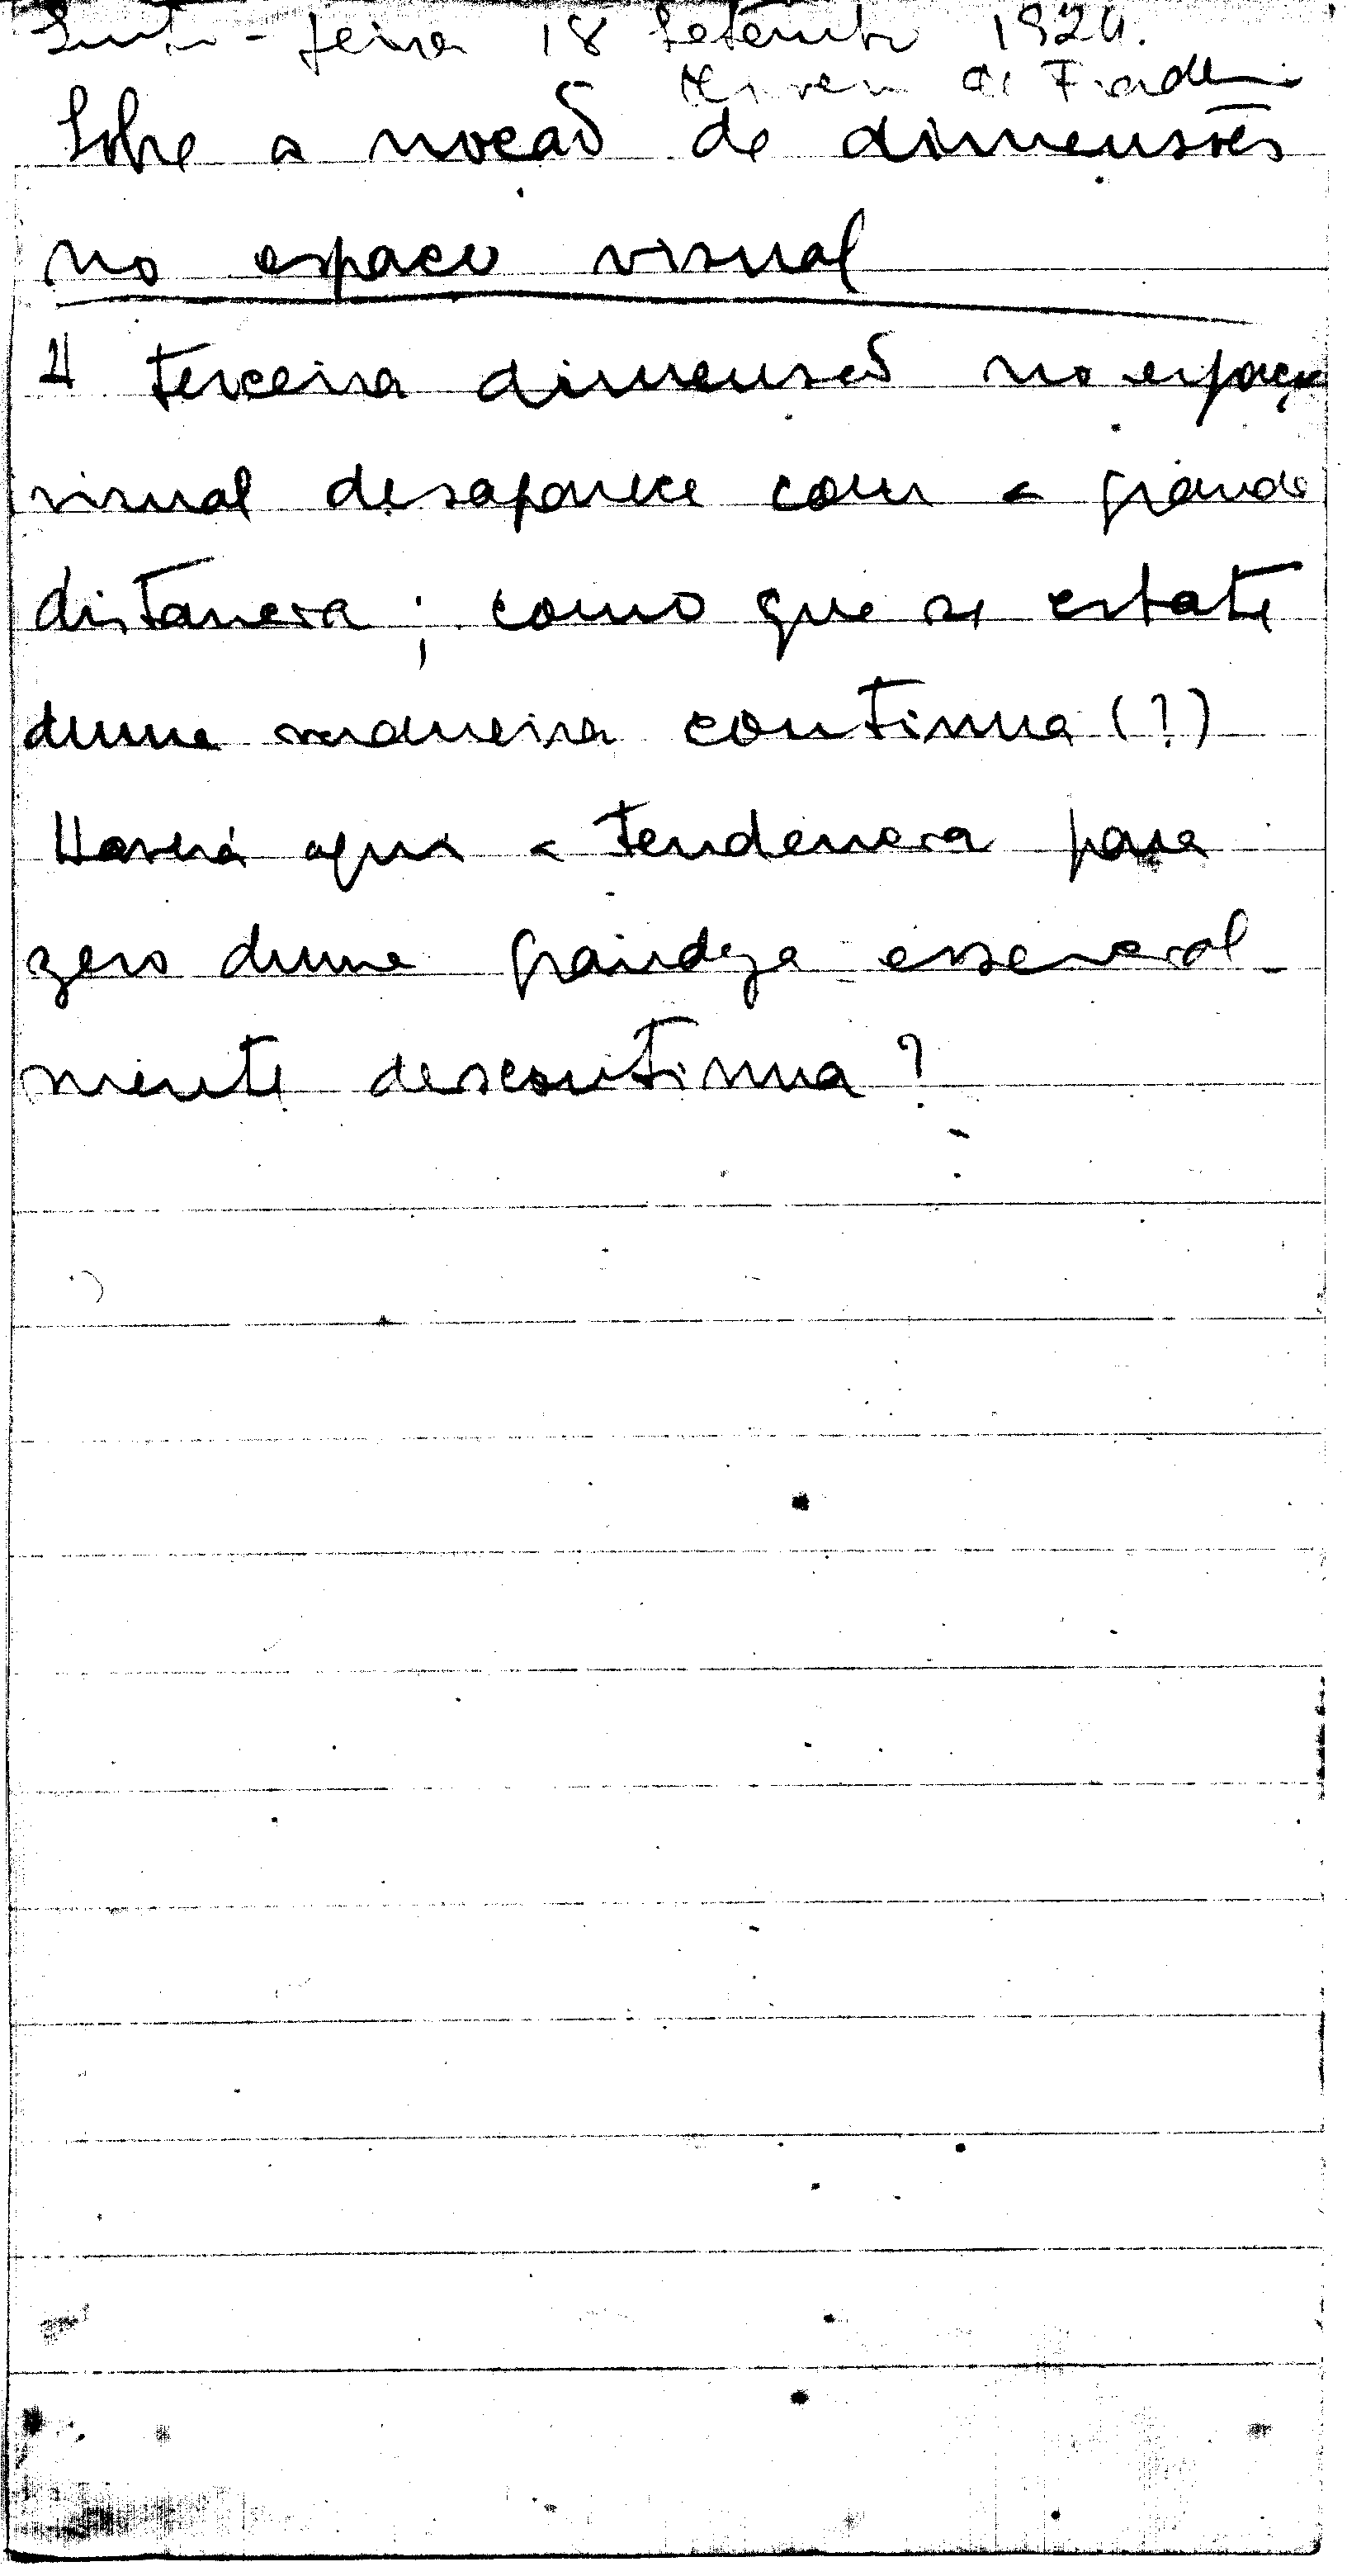 Quinta-feira 18 Setembro 1924.
de
Sobre a noção de dimensões
no espaço visual
A terceira dimensão no espaço
visual desaparece com a grande
distancia; como que se esbate
duma maneira continua (?)
Haverá aqui a tendencia para
zero duma grandeza essencial-
mente descontinua?